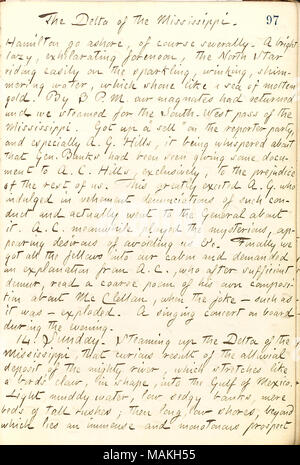 The Delta of the Mississippi.
97
Hamilton go ashore, of course severally. A bright
lazy, exhilarating forenoon, the North Star
riding easily on the sparkling, winking, shim-
mering water, which shone like a sea of molten
gold. By 3 P.M. our magnates had returned
and we steamed for the South-West pass of the
Mississippi. Got up a "sell" on the reporter party,
and especially A. G. Hills, it being whispered about
that Gen. Banks had been seen giving some docu-
ment to A. C. Hills, exclusively, to the prejudice
of the rest of us. This greatly excited A. G. who
indulged in vehement denunciations of such con-
duct and actually went to the General about
it. A. C. meanwhile played the mysterious, ap-
pearing desirous of avoiding us &c. Finally we
got all the fellows into our cabin and demanded
an explanation from A. C., who after sufficient
demur, read a coarse poem of his own composi-
tion about McClellan, when the joke — such as
it was — exploded. A singing concert on board
during the evening.
14. Sunday. Steaming up the Delta of the
Mississippi, that curious result of the alluvial
deposit of the mighty river, which stretches like
a bird's claw, in shape, into the Gulf of Mexico.
Light muddy water, low sedgy banks, mere
beds of tall rushes; then long, low shores, beyond
which lies an immense and monotonous prospect
alamy
Image ID: MAKH55
www.alamy.com